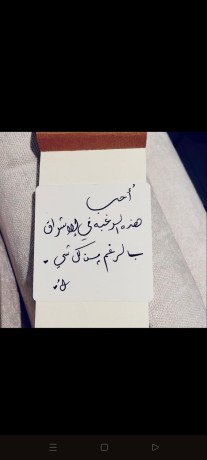 أحب
هذه الرغبة في الإشراق
بالرغم من كل شي